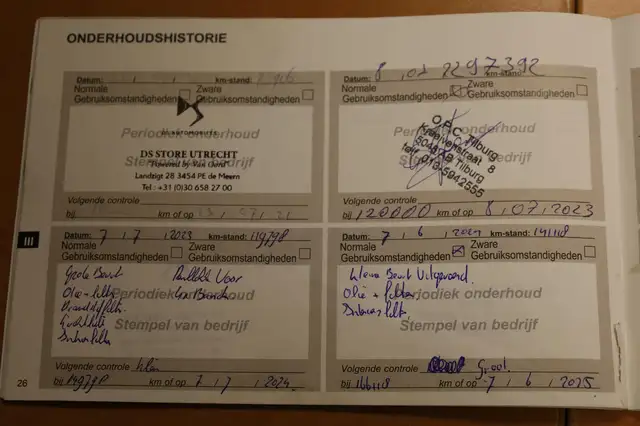 ONDERHOUDSHISTORIE
Datum: km-stand:
Normale Gebruiksomstandigheden Zware Gebruiksomstandigheden
Periodiek onderhoud
DS AUTOMOBILES
DS STORE UTRECHT
Powered by Van Oord
Stempel van bedrijf
Landzigt 28 3454 PE de Meern
Tel : +31 (0)30 658 27 00
Volgende controle
bij km of op 13 07 21
Datum: 8 , 07 2297392 km-stand:
Normale Gebruiksomstandigheden Zware Gebruiksomstandigheden
Periodiek onderhoud
Stempel van bedrijf
O.P.C. Tilburg
8
Tilburg
5942555
Volgende controle
bij 120000 km of op 8 , 07 , 2023
Datum: 7 , 7 , 2023 km-stand: 119798
Normale Gebruiksomstandigheden Zware Gebruiksomstandigheden
Grote Beurt
Voor
Periodiek onderhoud
Stempel van bedrijf
Volgende controle klein
bij km of op 7 , 7 , 2024
Datum: 7 , 6 , 2024 km-stand: 141118
Normale Gebruiksomstandigheden Zware Gebruiksomstandigheden
Kleine Beurt Uitgevoerd
Olie + filter
Periodiek onderhoud
Stempel van bedrijf
Volgende controle Groot
bij 166118 km of op 7 , 6 , 2025
III
26